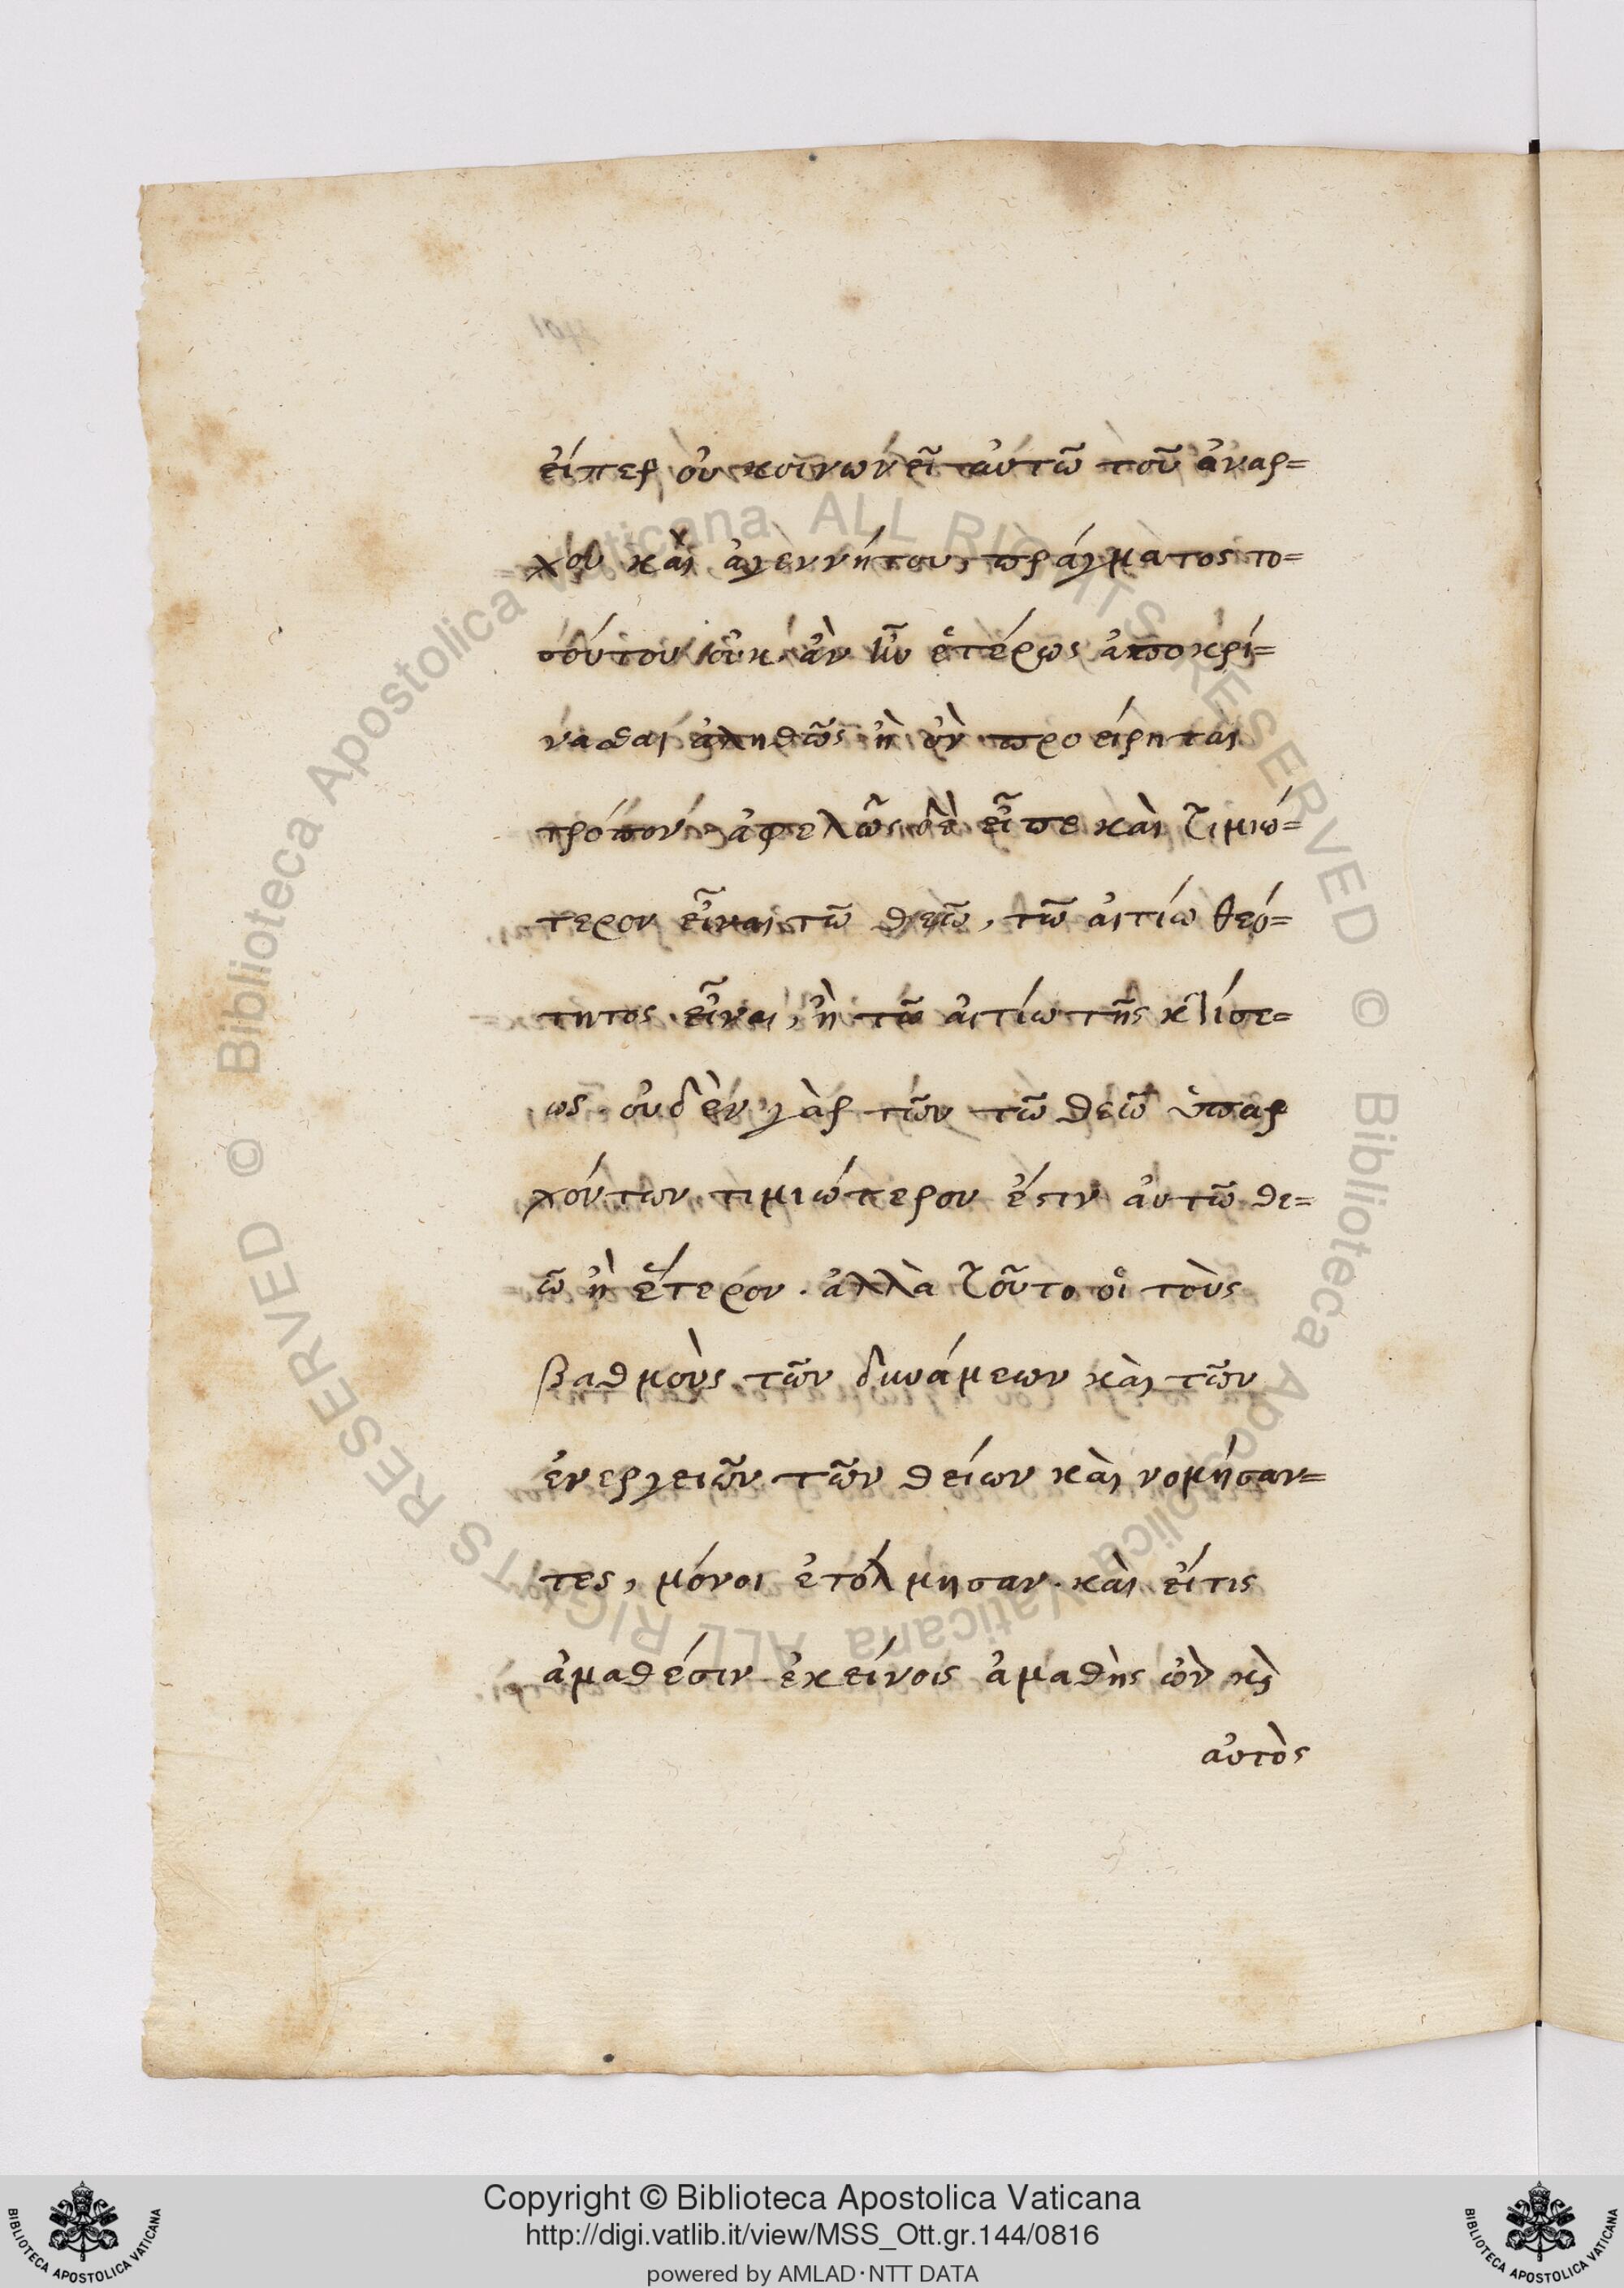 εἴπερ οὐ κοινωνεῖ αὐτῶ τοῦ ἀναρ=
χου καὶ ἀγεννήτου, πράγματος το=
σούτου οὐκ ἂν ἦν ἑτέρως ἀποκρί=
νασθαι ἀληθῶς ἢ ὃν προείρηται
τρόπον· ἀφελῶς δὲ εἶπε καὶ τιμιώ=
τερον εἶναι τῶ θεῶ, τῶ αἰτίω θεό=
τητος εἶναι, ἢ τῶ αἰτίω τῆς κτίσε=
ως· οὐδὲν γὰρ τῶν τῶ θεῶ ὑπαρ
χόντων, τιμιώτερον ἐστιν αὐτῶ θε=
ῶ ἢ ἕτερον. ἀλλὰ τοῦτο οἱ τοὺς
βαθμοὺς τῶν δυνάμεων καὶ τῶν
ἐνεργειῶν τῶν θείων καὶ νομήσαν=
τες, μόνοι ἐτόλμησαν. καὶ εἴτις
ἀμαθέσιν ἐκείνοις ἀμαθὴς ὢν κὶ
αὐτὸς
© Biblioteca Apostolica Vaticana ALL RIGHTS RESERVED © Biblioteca Apostolica Vaticana ALL RIGHTS RESERVED
Copyright © Biblioteca Apostolica Vaticana
http://digi.vatlib.it/view/MSS_Ott.gr.144/0816
powered by AMLAD·NTT DATA
BIBLIOTECA APOSTOLICA VATICANA
BIBLIOTECA APOSTOLICA VATICANA